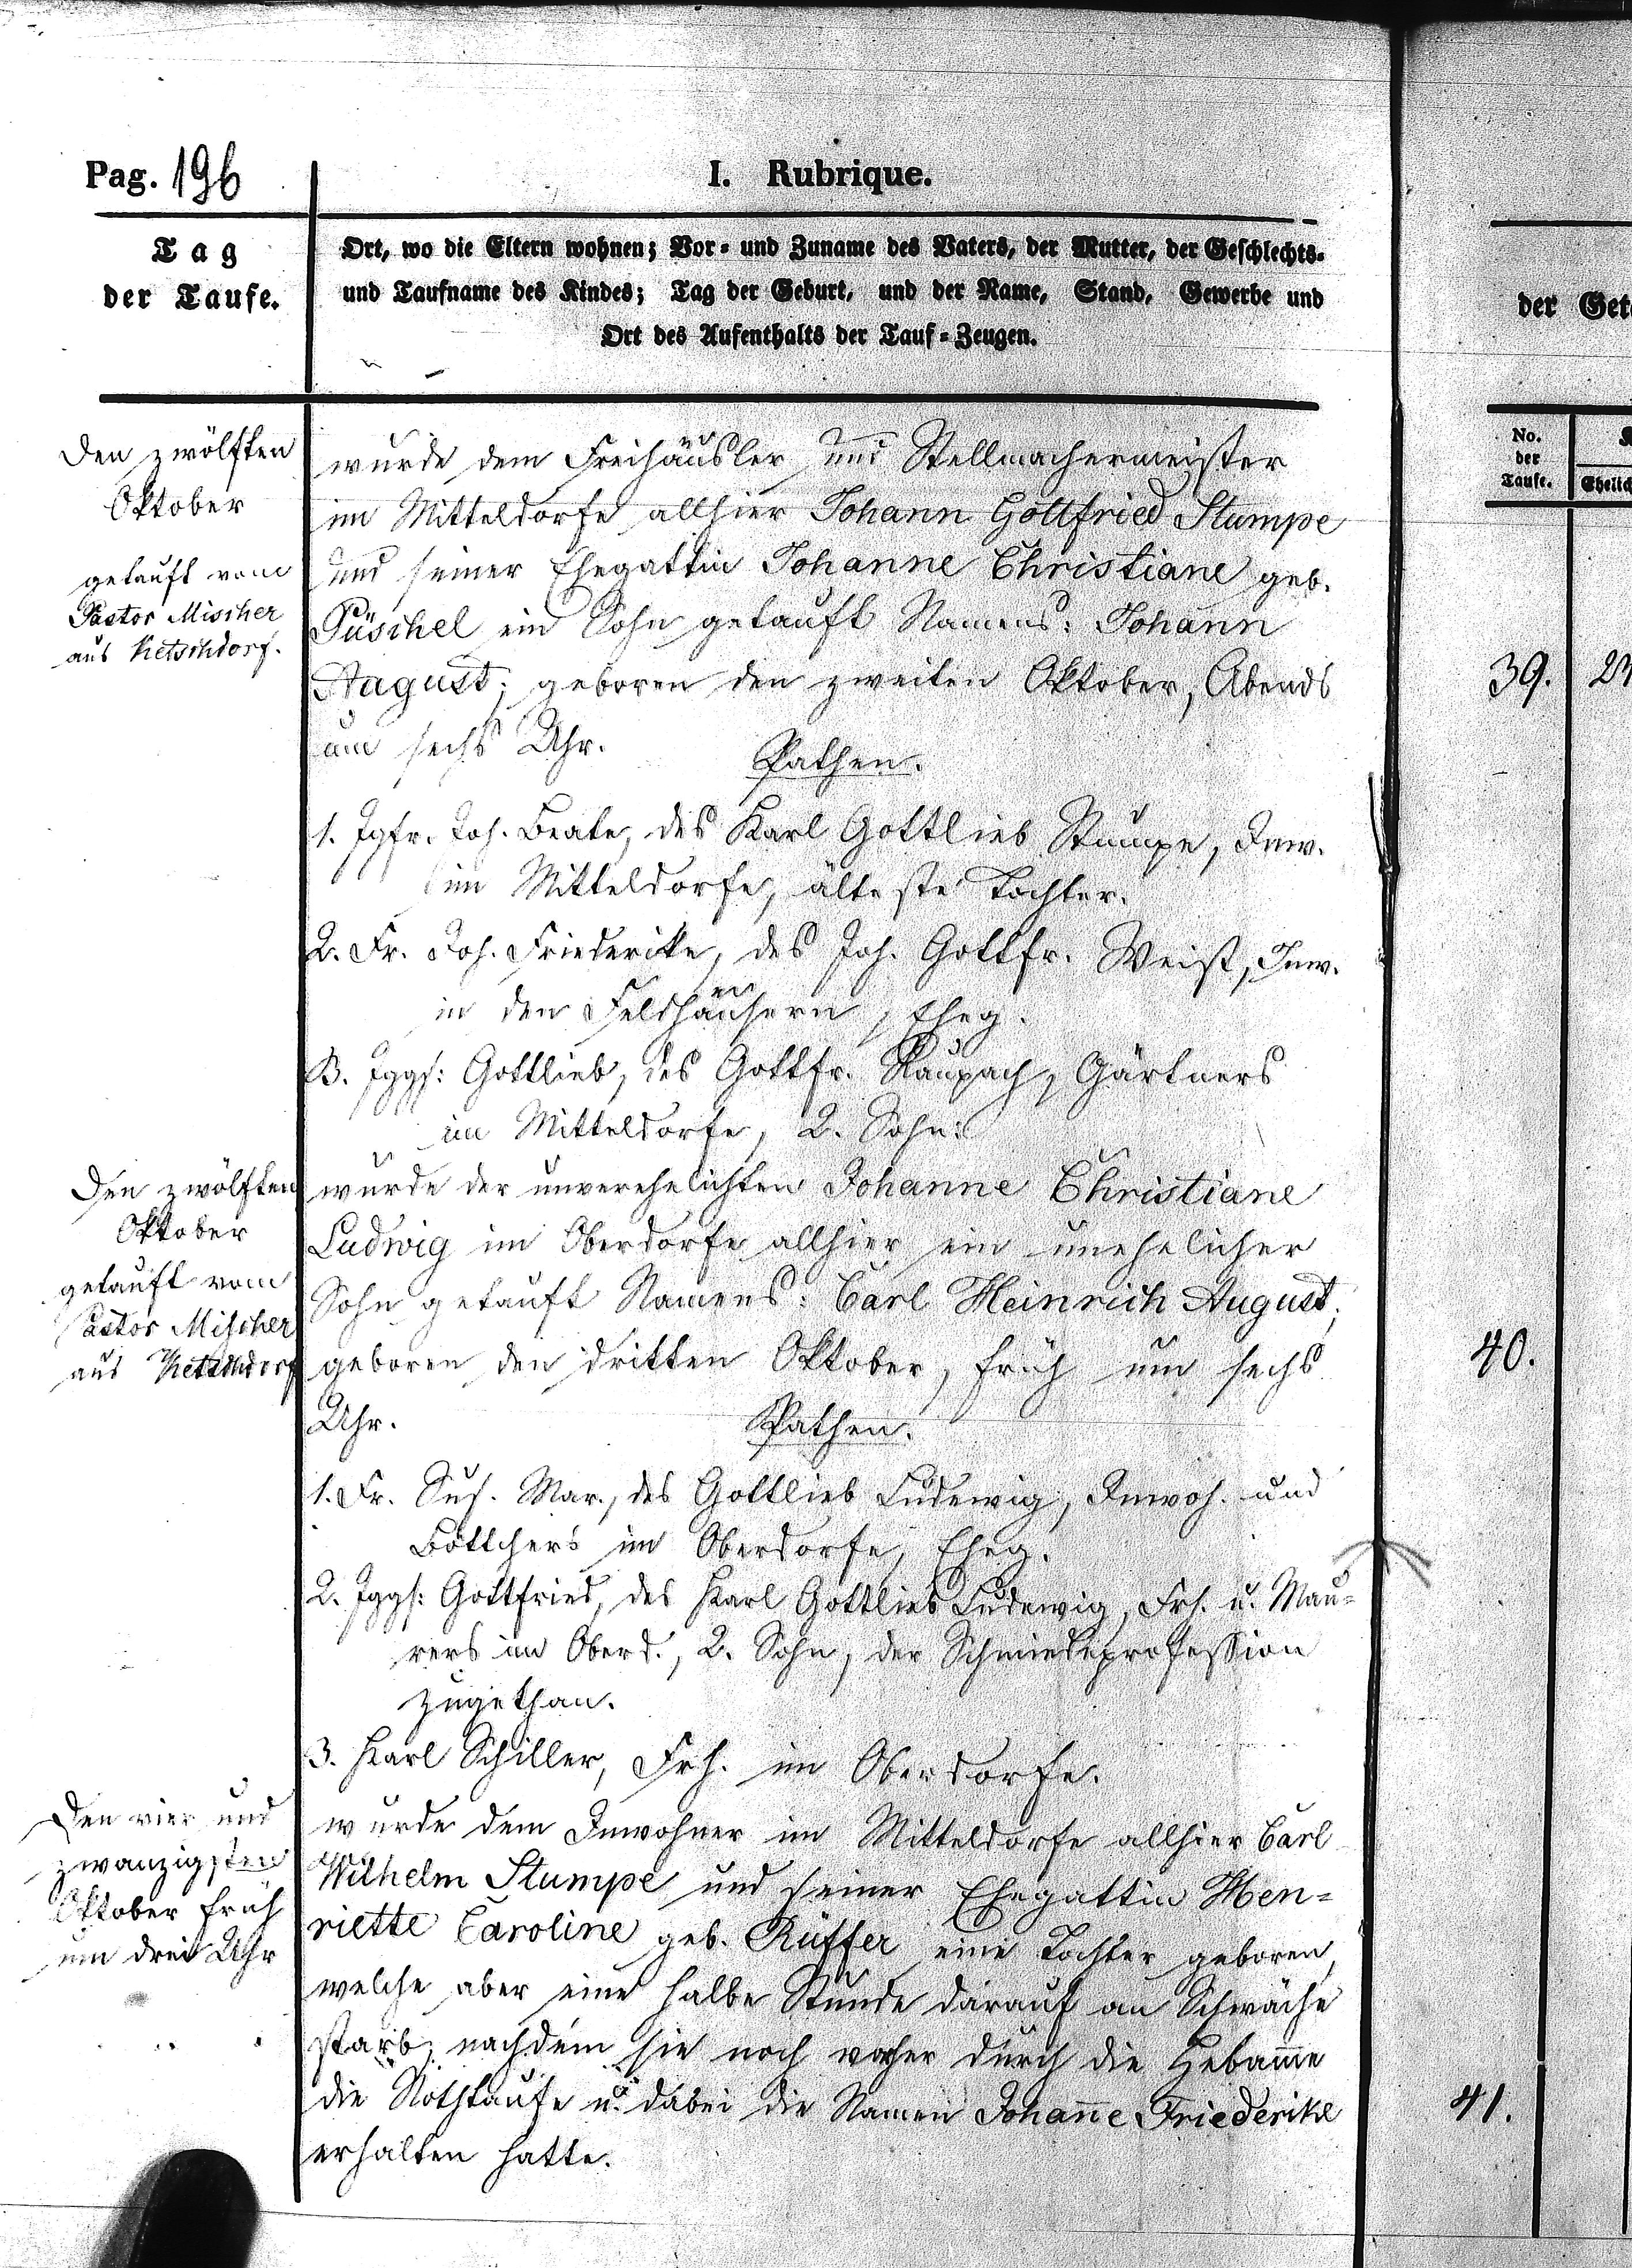 Pag. 196
I. Rubrique.
Tag
der Taufe.
Ort, wo die Eltern wohnen; Vor- und Zuname des Vaters, der Mutter, der Geschlechts-
und Taufname des Kindes; Tag der Geburt, und der Name, Stand, Gewerbe und
Ort des Aufenthalts der Tauf-Zeugen.
Den zwölften
Oktober
getauft vom
Pastor Mischer
aus Ketschdorf.
wurde dem Freihäusler und Stellmachermeister
im Mitteldorfe allhier Johann Gottfried Stumpe
und seiner Ehegattin Johanne Christiane geb.
Püschel ein Sohn getauft Namens: Johann
August; geboren den zweiten Oktober, Abends
um sechs Uhr.
Pathen.
1. Jgfr. Joh. Beate, des Karl Gottlieb Stumpe, Inw.
im Mitteldorfe, älteste Tochter.
2. Fr. Joh. Friederike, des Joh. Gottfr. Weist, Inw.
in den Feldhäusern, Eheg.
3. Jggs: Gottlieb, des Gottfr. Raupach, Gärtners
im Mitteldorfe, 2. Sohn:
Den zwölften
Oktober
getauft vom
Pastor Mischer
aus Ketschdorf
wurde der unverehelichten Johanne Christiane
Ludwig im Oberdorfe allhier ein unehelicher
Sohn getauft Namens: Carl Heinrich August;
geboren den dritten Oktober, früh um sechs
Uhr.
Pathen.
1. Fr. Sus. Mar., des Gottlieb Ludewig, Inwoh. und
Böttchers im Oberdorfe, Eheg.
2. Jggs: Gottfried, des Karl Gottlieb Ludewig, Frh. u. Mau-
rers im Oberd., 2. Sohn, der Schmiedeprofession
zugethan.
3. Karl Schiller, Frh. im Oberdorfe.
Den vier und
zwanzigsten
Oktober früh
um drei Uhr
wurde dem Inwohner im Mitteldorfe allhier Carl
Wilhelm Stumpe und seiner Ehegattin Hen-
riette Caroline geb. Rüffer eine Tochter geboren,
welche aber eine halbe Stunde darauf an Schwäche
starb, nachdem sie noch vorher durch die Hebam̄e
die Nothtaufe u. dabei die Namen Johan̄e Friederike
erhalten hatte.
der
No.
der
Taufe.
39. 23
40.
41.